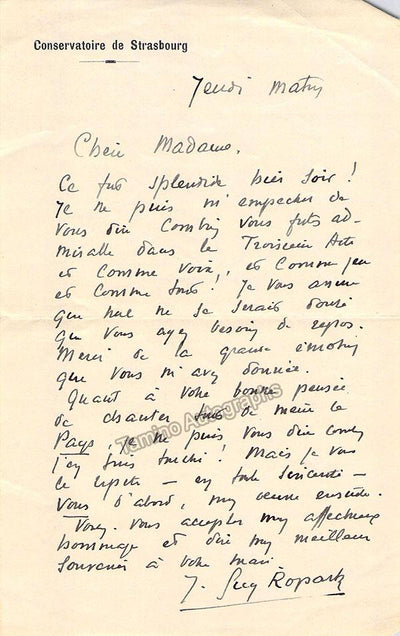 Conservatoire de Strasbourg
Jeudi matin
Chère Madame,
Ce fut splendide hier soir !
Je ne puis m'empecher de
vous dire combien vous futes ad-
mirable dans le Troisieme Acte
et comme voix, et comme jeu
et comme tout ! Je vous assure
que nul ne se serait douté
que vous ayez besoin de repos.
Merci de la grande émotion
que vous m'avez donnée.
Quant à votre bonne pensée
de chanter tout de même le
Pays, je ne puis vous dire combien
j'en suis touché ! Mais je vous
le répète – en toute sincérité –
vous d'abord, mon œuvre ensuite.
vous accepter mon affectueux
hommage et dire mon meilleur
souvenir à votre mari
J. Guy Ropartz
Tamino Autographs